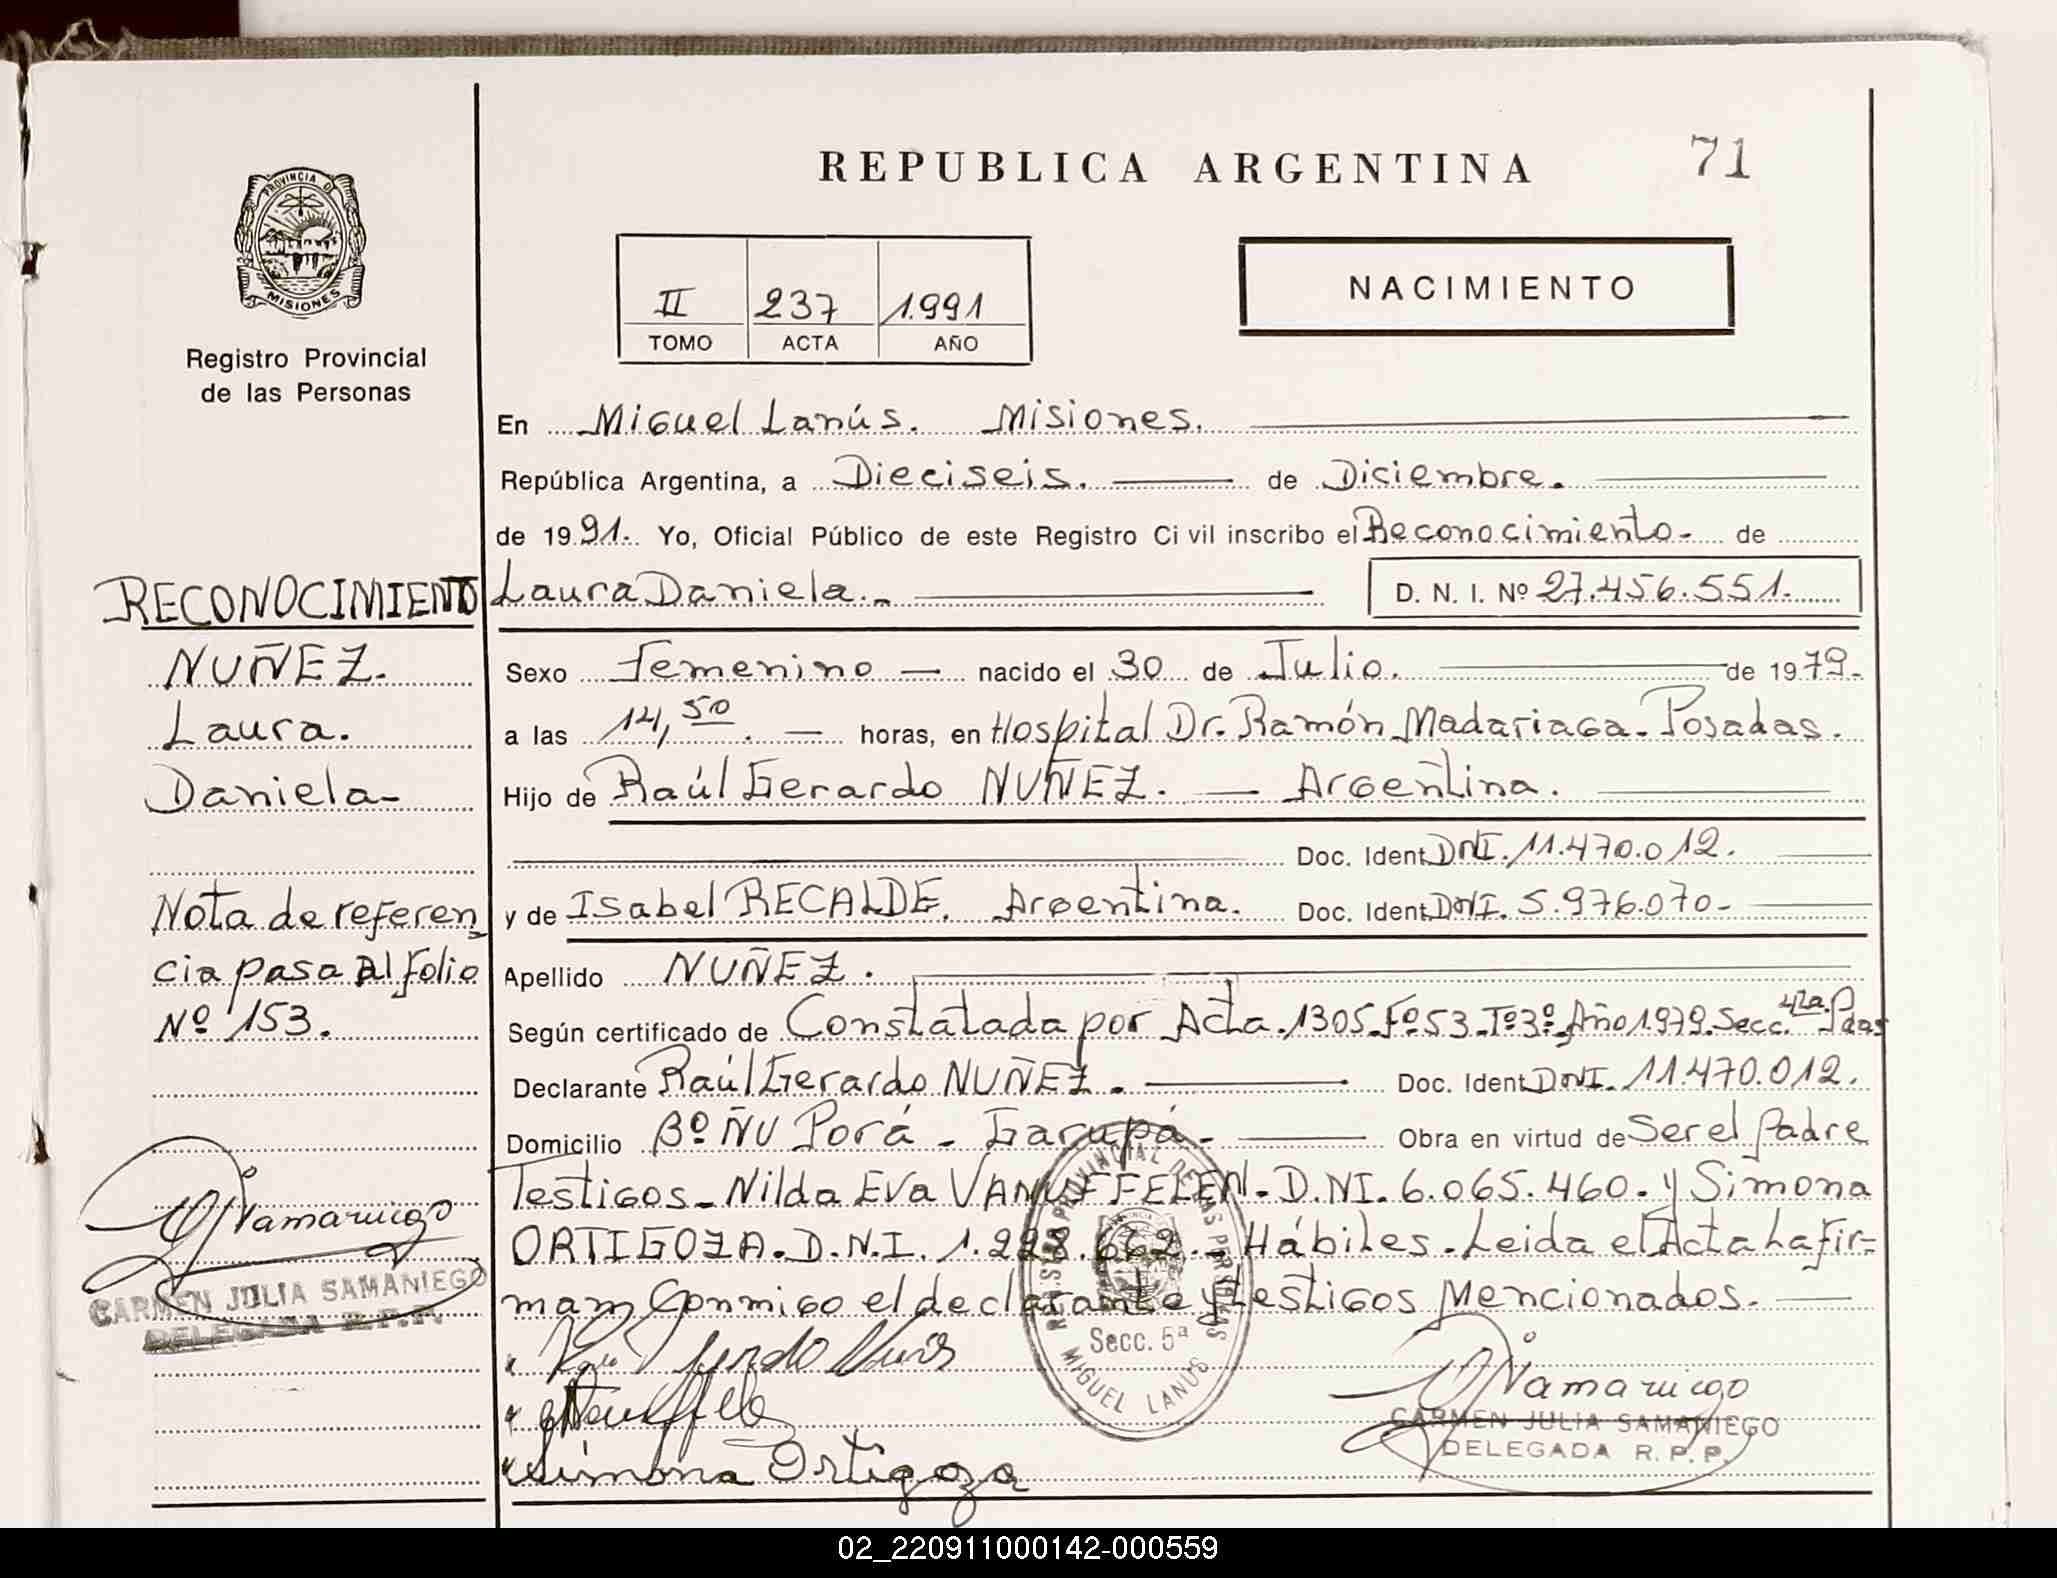 REPUBLICA ARGENTINA
71
PROVINCIA DE
MISIONES
Registro Provincial
de las Personas
II 237 1.991
TOMO ACTA AÑO
NACIMIENTO
En Miguel Lanús. Misiones.
República Argentina, a Dieciseis. de Diciembre.
de 1991. Yo, Oficial Público de este Registro Civil inscribo el Reconocimiento- de
Laura Daniela.- D. N. I. Nº 27.456.551.
Sexo Femenino — nacido el 30 de Julio. de 1979-
a las 14,50. — horas, en Hospital Dr. Ramón Madariaga- Posadas.
Hijo de Raúl Gerardo NUÑEZ. — Argentina.
Doc. Ident. DNI. 11.470.012.
y de Isabel RECALDE. Argentina. Doc. Ident. DNI. 5.976.070-
Apellido NUÑEZ.
Según certificado de Constatada por Acta.1305.Fº53.Tº3º.Año1.979.Secc.4ta.Pdas
Declarante Raúl Gerardo NUÑEZ. Doc. Ident. DNI. 11.470.012.
Domicilio Bº ÑU Porá - Garupá- Obra en virtud de Ser el Padre
Testigos- Nilda Eva VANUFFELEN- D.NI. 6.065.460. y Simona
ORTIGOZA. D.N.I. Hábiles. Leida el Acta La fir=
man Conmigo el declarante y testigos Mencionados.
Simona Ortigoza
RECONOCIMIENTO
NUÑEZ.
Laura.
Daniela-
Nota de referen
cia pasa Al Folio
Nº 153.
CARMEN JULIA SAMANIEGO
DELEGADA R.P.P.
REGISTRO PROVINCIAL DE LAS PERSONAS
Secc. 5ª
MIGUEL LANUS
CARMEN JULIA SAMANIEGO
DELEGADA R. P. P.
02_220911000142-000559